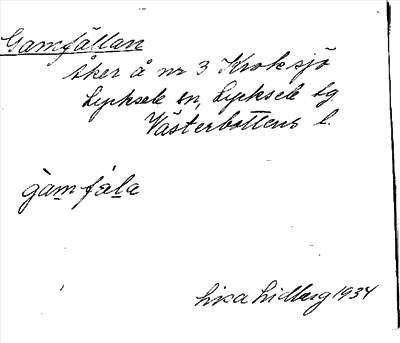 Gamfällan
Åker å nr 3 Kroksjö
Lycksele sn, Lycksele lg
Västerbottens l.
gàmfäla
Lisa Lidberg 1934